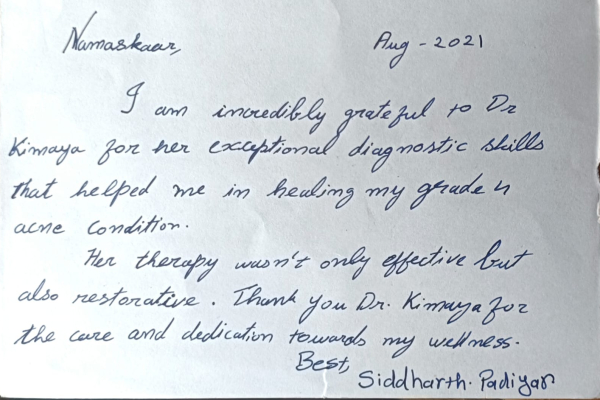 Namaskaar, Aug - 2021
I am incredibly grateful to Dr
Kimaya for her exceptional diagnostic skills
that helped me in healing my grade
acne condition.
Her therapy wasn't only effective but
also restorative. Thank you Dr. Kimaya for
the care and dedication towards my wellness.
Best,
Siddharth. Padiyar